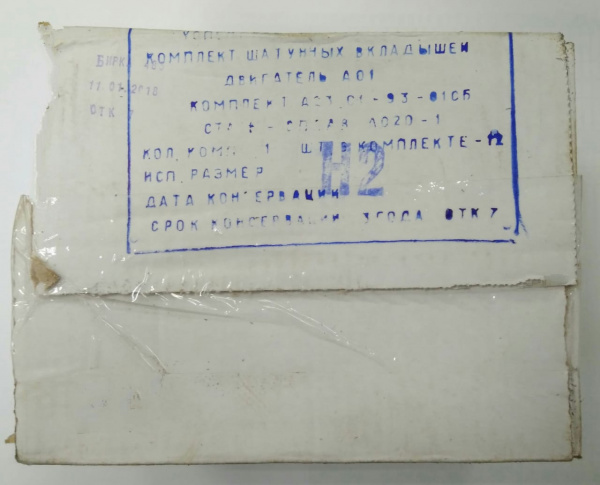 КОМПЛЕКТ ШАТУННЫХ ВКЛАДЫШЕЙ
ДВИГАТЕЛЬ А01
КОМПЛЕКТ А23.01-93-01СБ
АО20-1
КОЛ. КОМП. 1 ШТ В КОМПЛЕКТЕ-12
ИСП. РАЗМЕР
Н2
ДАТА КОНСЕРВАЦИИ
СРОК КОНСЕРВАЦИИ 3 ГОДА ОТК 7
ОТК